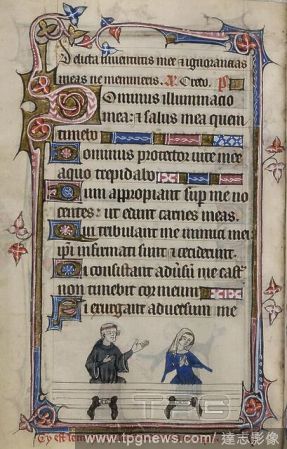 Delicta iuventutis mee et ignorancias
meas ne memineris. A. Credo. P
Dominus illuminacio
mea: et salus mea quem
timebo
Dominus protector vite mee
a quo trepidabo
Dum appropiant sup me no
centes: ut edant carnes meas.
Qui tribulant me inimici mei
ipi infirmati sunt et ceciderunt
Si consistant adversum me cast
non timebit cor meum
Si exurgant adversum me
TPG
www.tpgnews.com / 達志影像